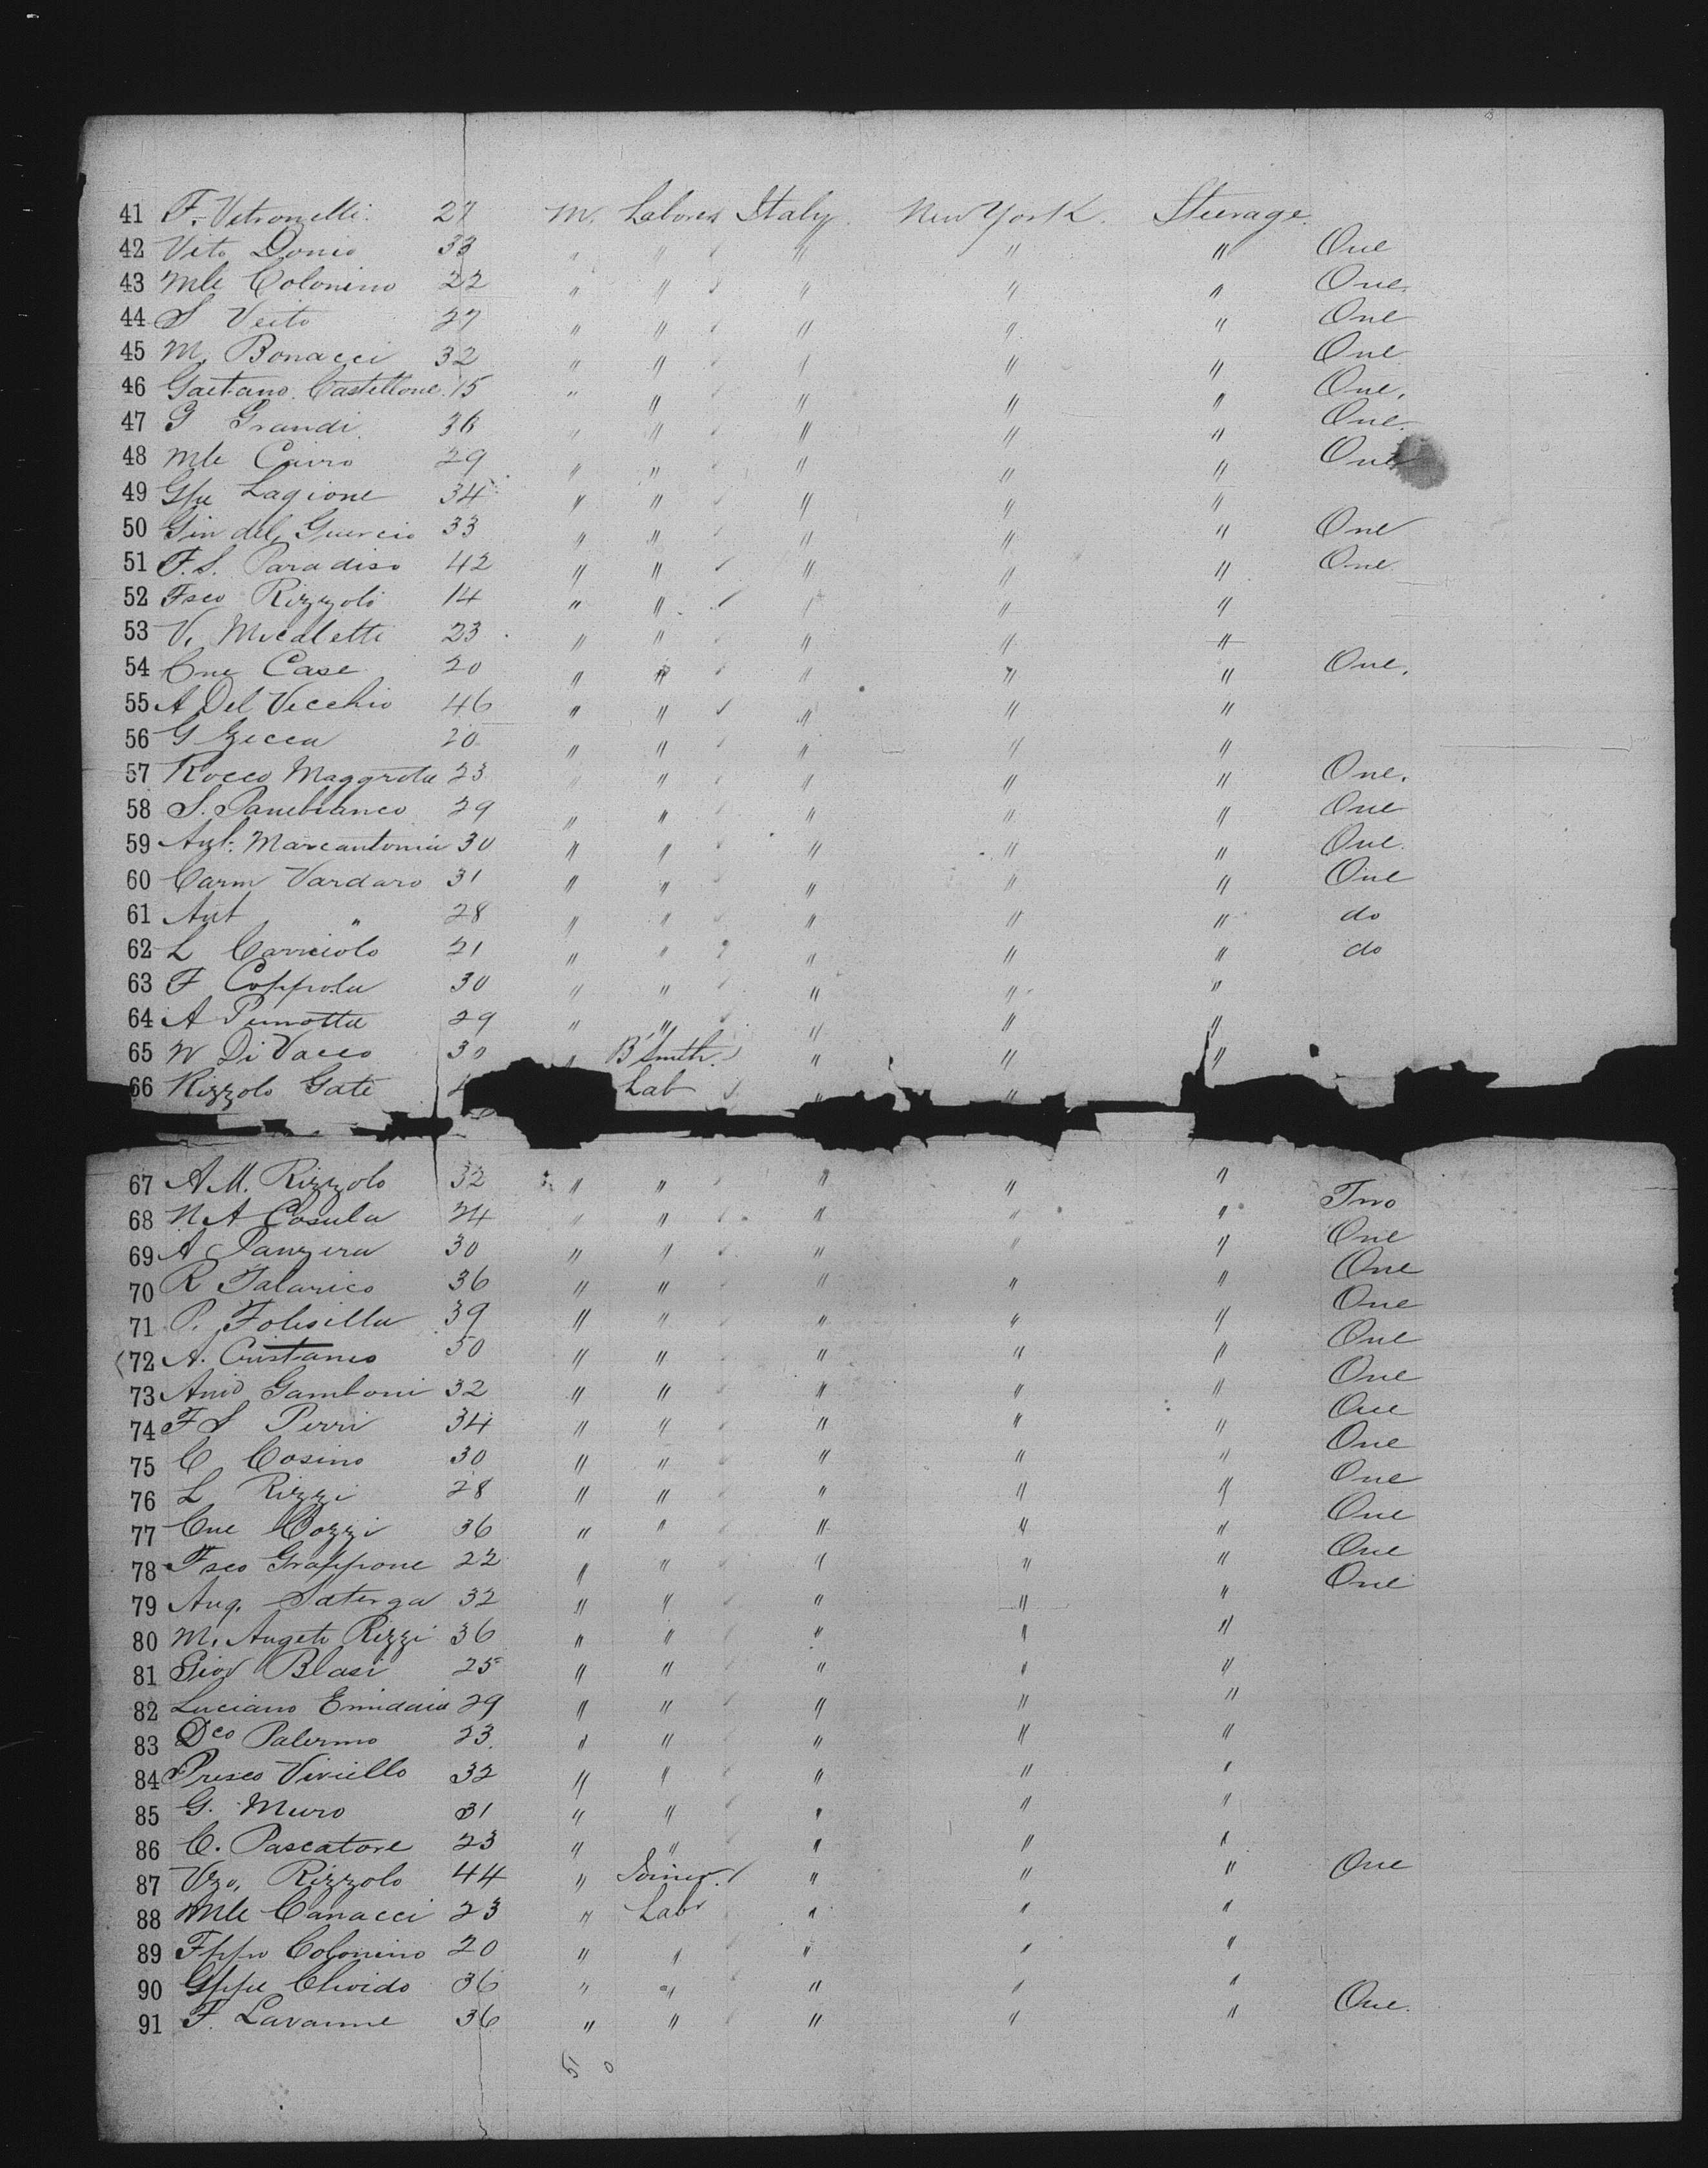 41 F. Vetronelli 27 M. Laborer Italy New York. Steerage.
42 Vito Donio 33 " " " " " One
43 Mle Colonino 22 " " " " " One.
44 S Veito 27 " " " " " One
45 M. Bonacci 32 " " " " " One
46 Gaetano Castellone 15 " " " " " One.
47 G Grandi 36 " " " " " One.
48 Mle Cairo 29 " " " " " One
49 Gpe Lagione 34 " " " " "
50 Gin del Guercio 33 " " " " " One
51 F. S. Paradiso 42 " " " " " One
52 Fsco Rizzolo 14 " " " " "
53 V. Micaletti 23 " " " " "
54 Cne Case 20 " " " " " One.
55 A Del Vecchio 46 " " " " "
56 G Zecca 20 " " " " "
57 Rocco Maggrota 23 " " " " " One.
58 S. Panebianco 29 " " " " " One
59 Marcantonia 30 " " " " " One.
60 Carm Vardaro 31 " " " " " One
61 Ant " 28 " " " " " do
62 L Carriciolo 21 " " " " " do
63 F Coppola 30 " " " " "
64 A 29 " " " " "
65 N Di Vacco 30 " B'Smith " " "
66 Rizzolo Gate Lab " "
67 A. M. Rizzolo 32 " " " " "
68 N A Cosula 24 " " " " " Two
69 A Panzera 30 " " " " " One
70 R Talarico 36 " " " " " One
71 P. Folisilla 39 " " " " " One
72 A. Cristanio 50 " " " " " One
73 Gamboni 32 " " " " " One
74 F S Perri 34 " " " " " One
75 C Cosino 30 " " " " " One
76 L Rizzi 28 " " " " " One
77 Cne Cozzi 36 " " " " " One
78 Fsco Grappone 22 " " " " " One
79 Ang. Saterga 32 " " " " " One
80 M. Angelo Rizzi 36 " " " " "
81 Giov Blasi 25 " " " " "
82 Luciano Emiddio 29 " " " " "
83 Dco Palermo 23. " " " " "
84 Prisco Viviello 32 " " " " "
85 G. Muro 31 " " " " "
86 C. Pascatore 23 " " " " "
87 Vzo, Rizzolo 44 " Joiner. " " " One
88 Mle Canacci 23 " Labr " " "
89 Fppo Colonino 20 " " " " "
90 Gppe Chiodo 36 " " " " "
91 F. Lavanne 36 " " " " " One.
5 0